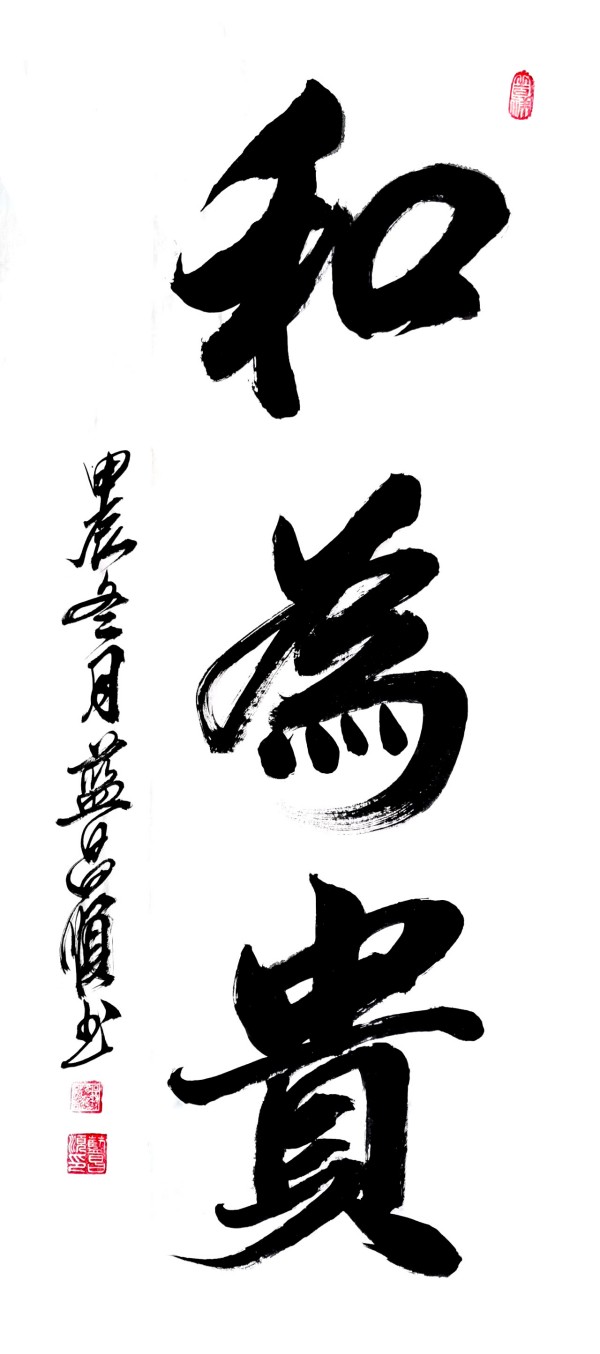 和為貴
甲辰冬月藍昌順书